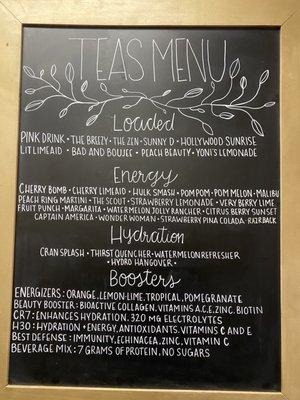 TEAS MENU
Loaded
PINK DRINK • THE BREEZY • THE ZEN • SUNNY D • HOLLYWOOD SUNRISE
LIT LIMEAID • BAD AND BOUJEE • PEACH BEAUTY • YONI'S LEMONADE
Energy
CHERRY BOMB • CHERRY LIMEAID • HULK SMASH • POM POM • POM MELON • MALIBU
PEACH RING MARTINI • THE SCOUT • STRAWBERRY LEMONADE • VERY BERRY LIME
FRUIT PUNCH • MARGARITA • WATERMELON JOLLY RANCHER • CITRUS BERRY SUNSET
CAPTAIN AMERICA • WONDER WOMAN • STRAWBERRY PINA COLADA • RAZRBACK
Hydration
CRAN SPLASH • THIRST QUENCHER • WATERMELON REFRESHER
• HYDRO HANGOVER •
Boosters
ENERGIZERS: ORANGE, LEMON-LIME, TROPICAL, POMEGRANATE
BEAUTY BOOSTER: BIOACTIVE COLLAGEN, VITAMINS A,C,E, ZINC, BIOTIN
CR7: ENHANCES HYDRATION, 320 MG ELECTROLYTES
H30: HYDRATION + ENERGY, ANTIOXIDANTS, VITAMINS C AND E
BEST DEFENSE: IMMUNITY, ECHINACEA, ZINC, VITAMIN C
BEVERAGE MIX: 7 GRAMS OF PROTEIN, NO SUGARS